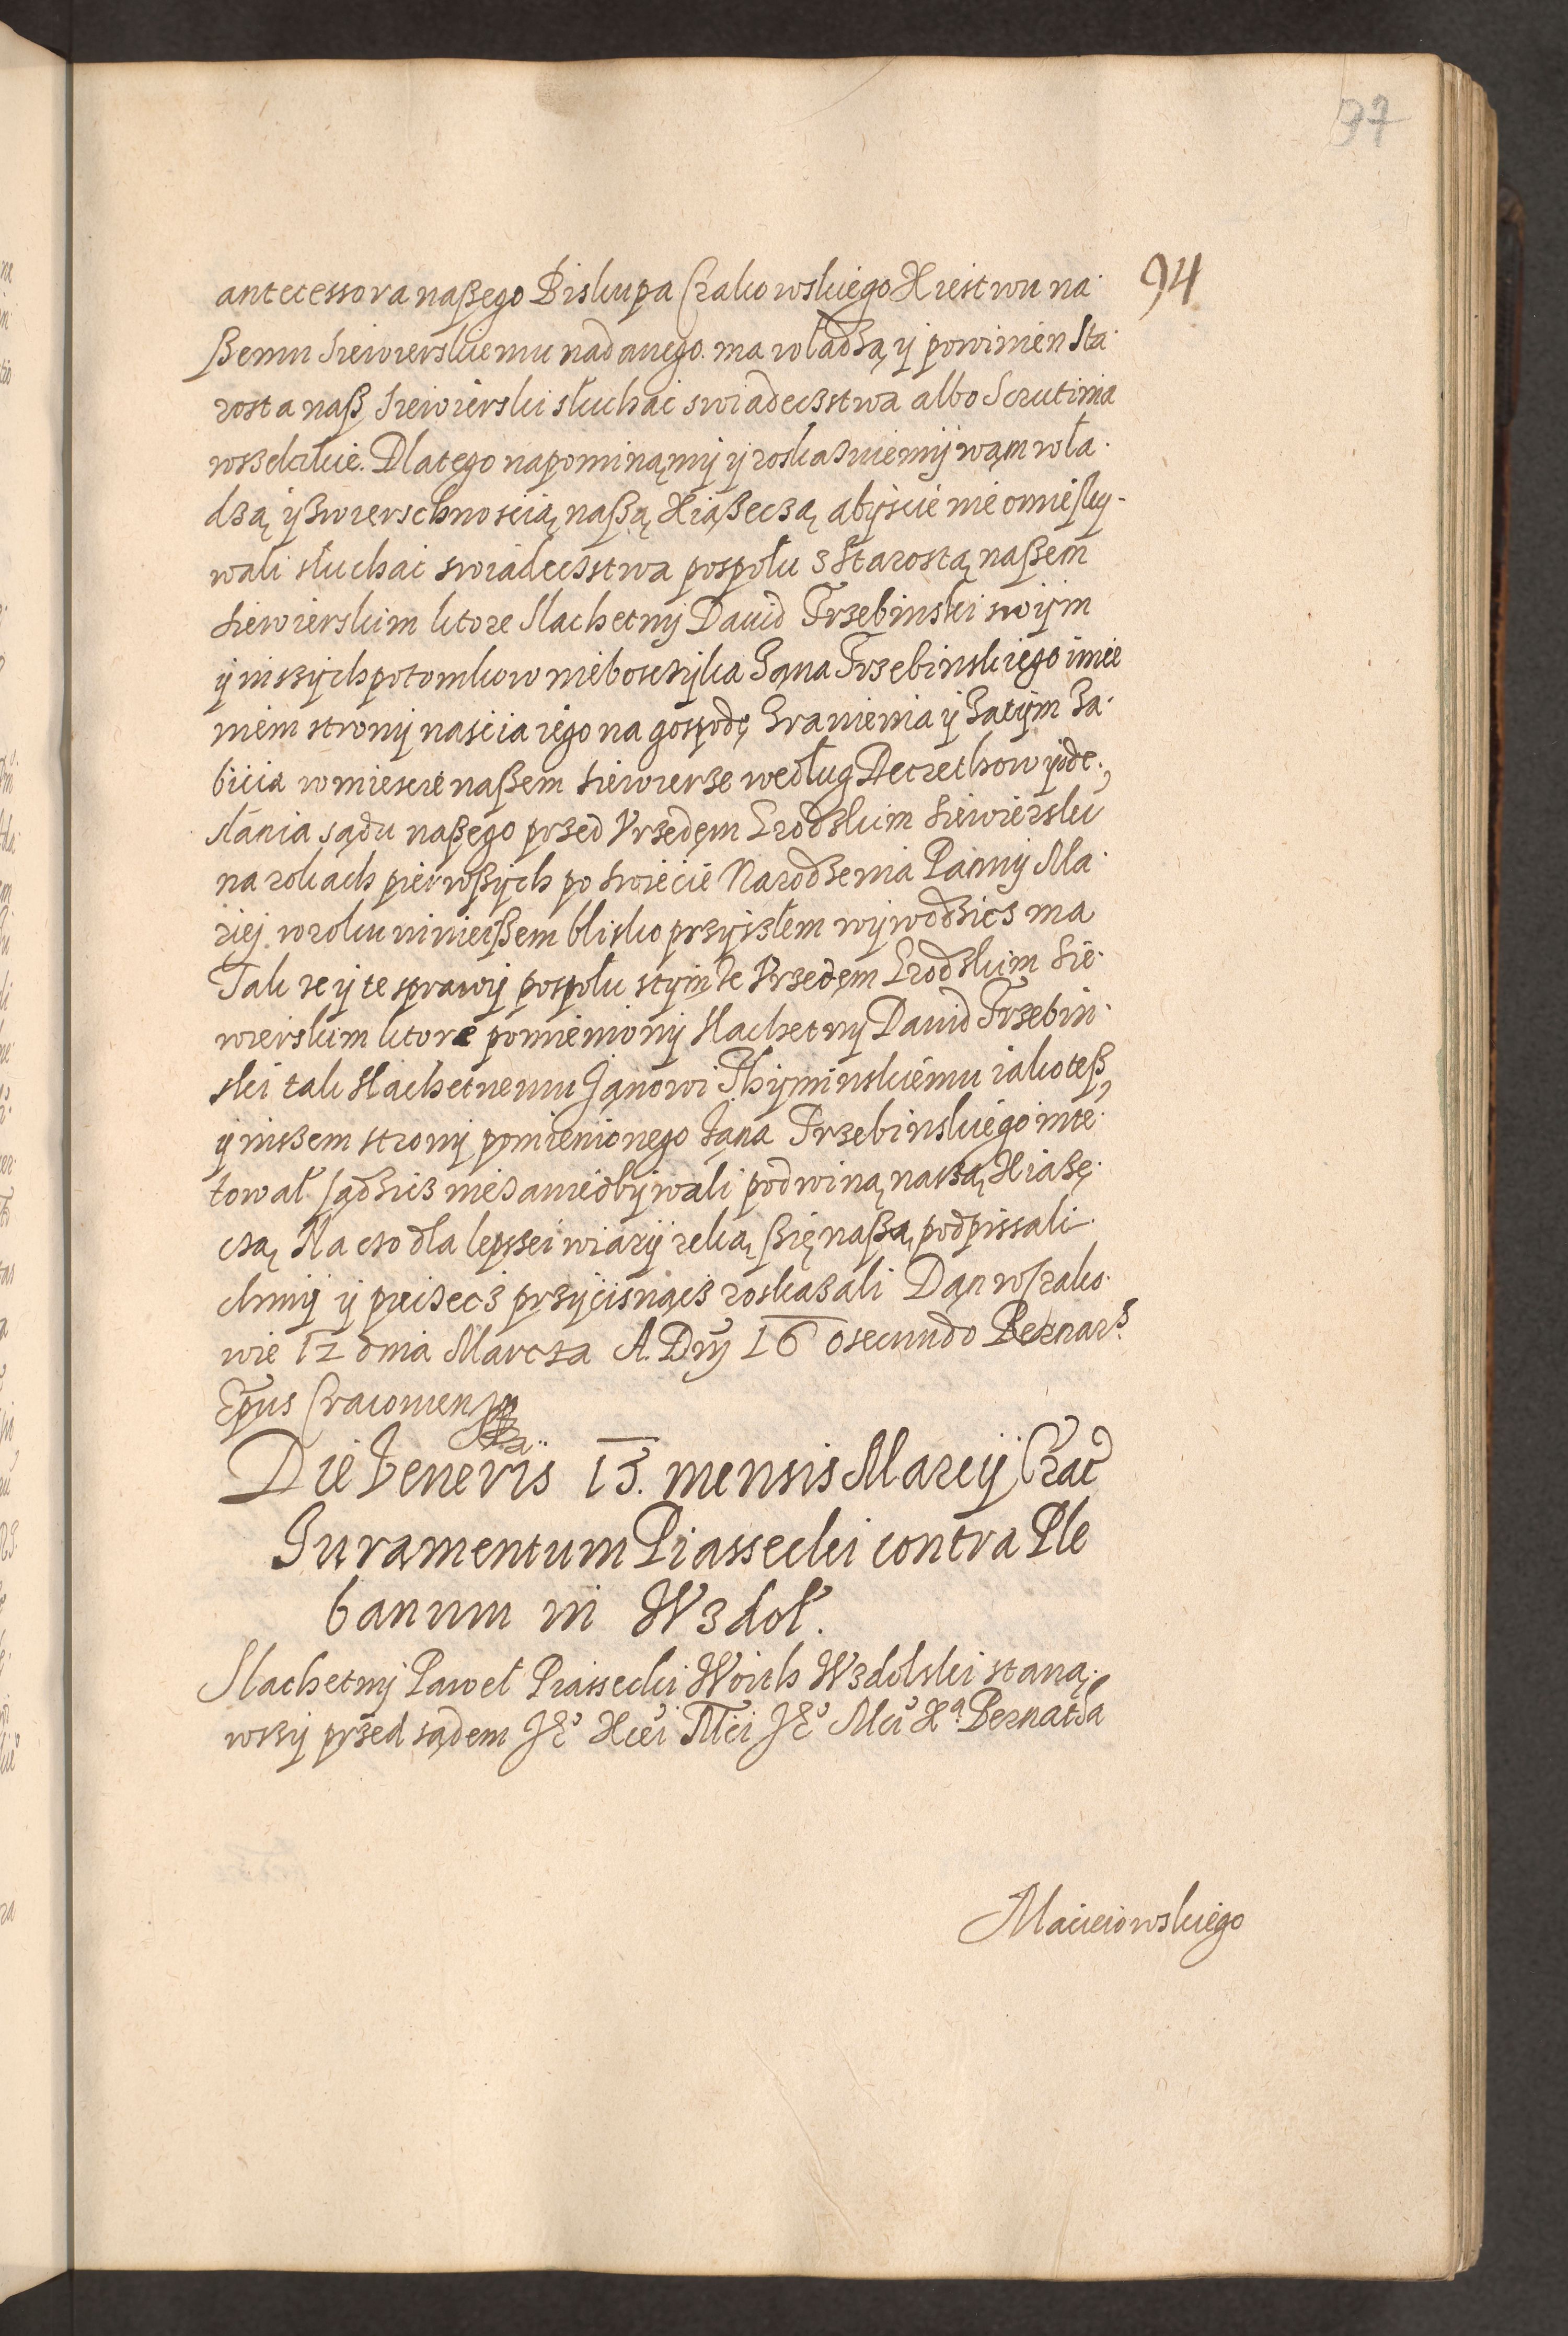 97
94
antecessora naßego Biskupa Crakowskiego Xiestwu na
ßemu Siewierskiemu nadanego. ma władzą y powinien Sta
rosta naß Siewierski słuchac swiadeczstwa albo Scrutinia
wszelakie. Dlatego napominamy y roskazuiemy wąm wła
dzą y zwierschnoscią naßą Xiąßeczą abyscie nie omiesky-
wali słuchac swiadeczstwa pospołu z Starostą naßem
Siewierskim ktore Slachetny Dauid Trzebinski swyim
y inszych potomkow nieboschyka Jana Trzebinskiego imie
niem strony nascia iego na gospodę Zranienia y Zatym Za
bicia w miescie naßem Siewierze według Decrethow y ode
słania sądu naßego przed Vrzedem Grodzkim Siewierskim
na rokach pierwßych po swiecie Narodzenia Panny Ma
riej w roku ninieißem blisko przyszłem wywodzicz ma
Tak ze y te sprawy pospołu stymze Vrzedem Grodzkim Sie
wierskim ktore pomieniony Slachetny Dauid Trzebin
ski tak Slachetnemu Janowi Thyminskiemu iako teß
y inszem strony pomienionego Jana Trzebinskiego inte
tował sądzicz nie zaniedbywali pod winą naszą Xiaßę
czą, Na czo dla lepszei wiary reką ßię naßą podpissali
chmy y pieczecz przycisnącz roskazali Dan w Crako
wie 12 dnia Marcza A. Dny 16 0 secundo Bernar:
Epus Cracouien
Die Veneris 15. mensis Marcij Crac
Juramentum Piassecki contra Ple
banum in Wzdoł.
Slachetny Paweł Piassecki Woith Wzdolski staną
wszy przed sądem Je° Xcei Mci Je° Mci Xa Bernatha
Macieiowskiego